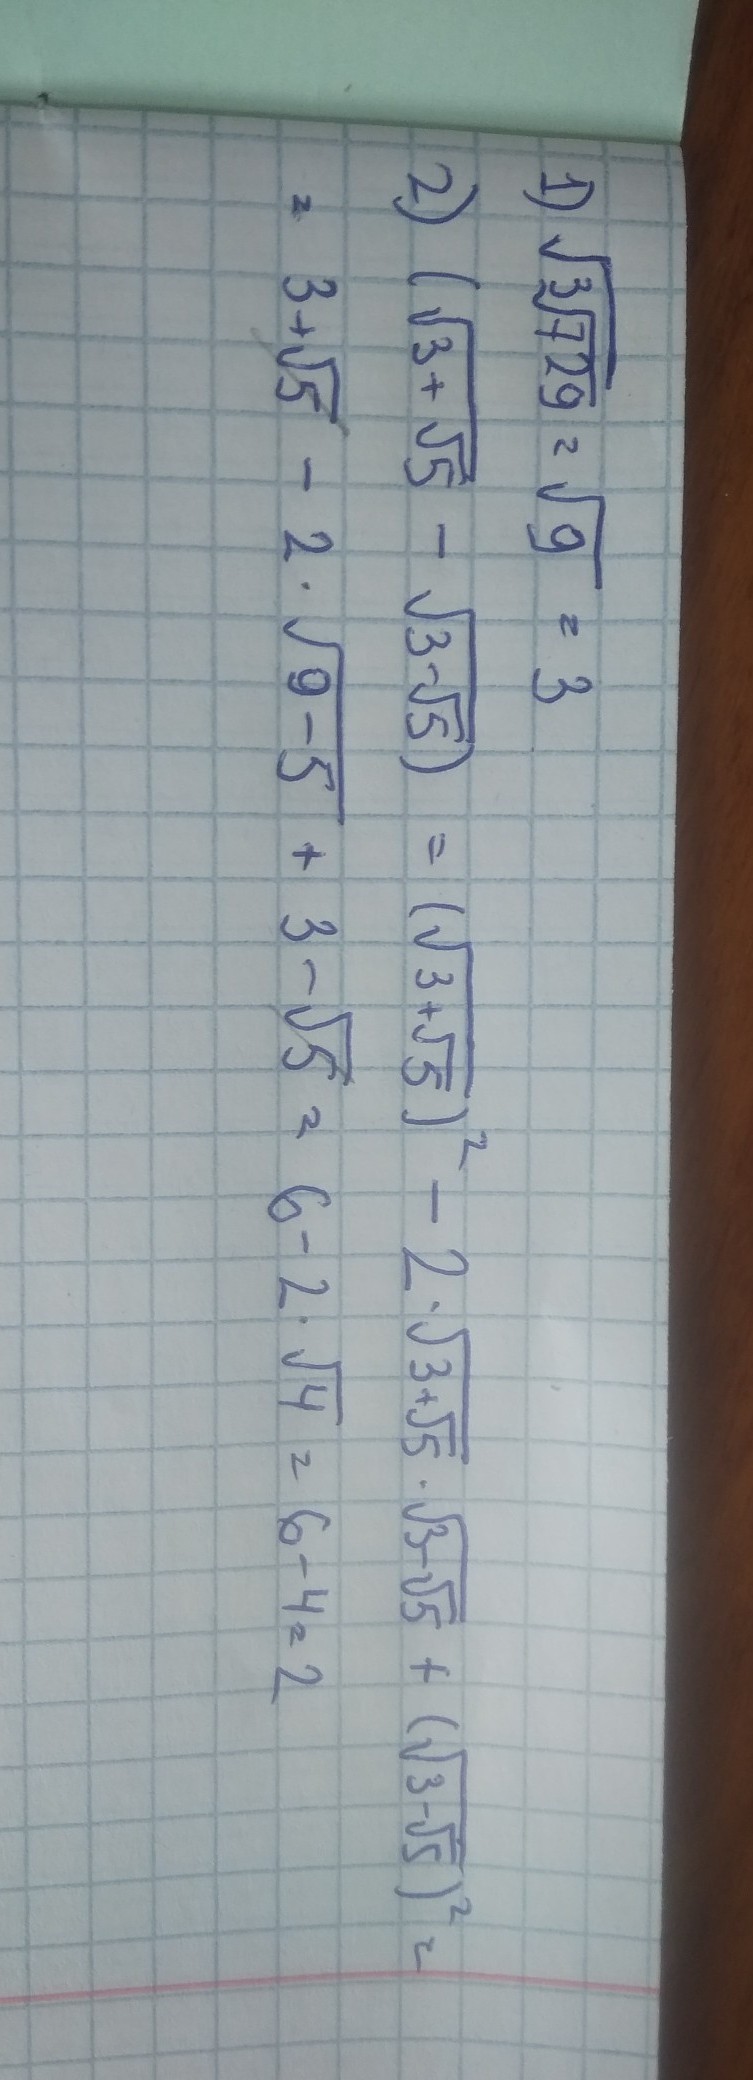 1) √(³√729) = √9 = 3
2) (√(3+√5) - √(3-√5)) = (√(3+√5))² - 2·√(3+√5)·√(3-√5) + (√(3-√5))² =
= 3+√5 - 2·√(9-5) + 3-√5 = 6-2·√4 = 6-4=2